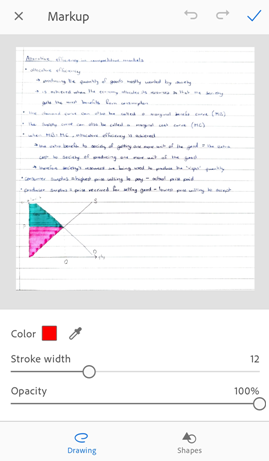 Markup
Allocative efficiency in competitive markets
• allocative efficiency
→ producing the quantity of goods mostly wanted by society
→ is achieved when the economy allocates its resources so that the society
gets the most benefits from consumption
• the demand curve can also be called a marginal benefit curve (MB)
• the supply curve can also be called a marginal cost curve (MC)
• when MB = MC, allocative efficiency is achieved
→ the extra benefits to society of getting one more unit of the good = the extra
cost to society of producing one more unit of the good
→ therefore society's resources are being used to produce the "right" quantity
• consumer surplus = highest price willing to pay - actual price paid
• producer surplus = price received for selling good - lowest price willing to accept
P
S
D
Q
Color
Stroke width 12
Opacity 100%
Drawing Shapes